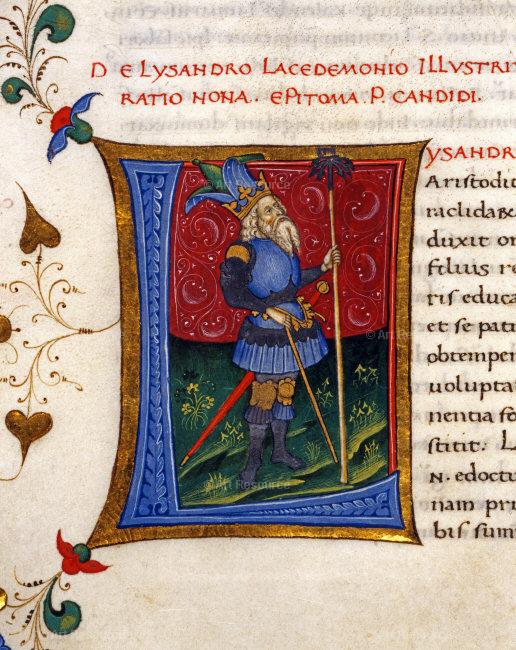 DE LYSANDRO LACEDEMONIO ILLVSTRI
RATIO NONA. EPITOMA P. CANDIDI.
YSANDR
Aristodit
raclidaꝝ
duxit or
filius re
ris educa
et se pati
obtemper
voluptat
nentia so
stitit. L
N. edoctu
nam pri
bis sum
Art Resource